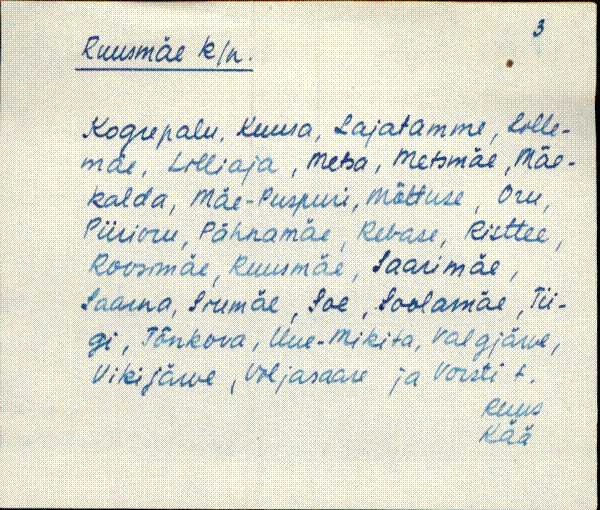 3
Ruusmäe k/n.
Kogrepalu, Kuusa, Lajatamme, Lolle-
mäe, Lilliaja, Metsa, Metsmäe, Mäe-
kalda, Mäe-Puspuri, Mõttuse, Oru,
Piirioru, Pähnamäe, Rebase, Risttee,
Roosimäe, Ruusmäe, Saarimäe,
Saarna, Sirumäe, Soe, Soolamäe, Tii-
gi, Tõnkova, Uue-Mikita, Valgjärve,
Vikijärve, Väljasaare ja Vorsti t.
Ruus
Kää